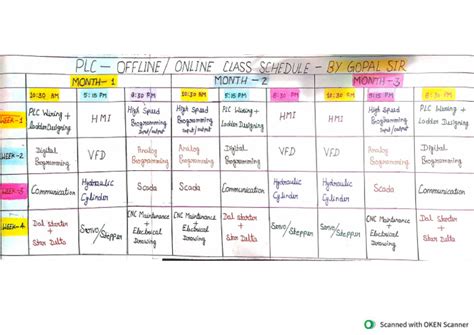 PLC - OFFLINE / ONLINE CLASS SCHEDULE - BY GOPAL SIR
MONTH - 1 MONTH - 2 MONTH - 3
10:30 AM 5:15 PM 8:30 PM 10:30 AM 5:15 PM 8:30 PM 10:30 AM 5:15 PM 8:30 PM
WEEK-1 PLC Wiring + Ladder Designing HMI High Speed Programming Input/output High Speed Programming Input/output PLC Wiring + Ladder Designing HMI HMI High Speed Programming Input/output PLC Wiring + Ladder Designing
WEEK-2 Digital Programming VFD Analog Programming Analog Programming Digital Programming VFD VFD Analog Programming Digital Programming
WEEK-3 Communication Hydraulic Cylinder Scada Scada Communication Hydraulic Cylinder Hydraulic Cylinder Scada Communication
WEEK-4 Dal Starter + Star Delta Servo/Stepper CNC Maintenance + Electrical Drawing CNC Maintenance + Electrical Drawing Dal Starter + Star Delta Servo/Stepper Servo/Stepper CNC Maintenance + Electrical Drawing Dal Starter + Star Delta
Scanned with OKEN Scanner